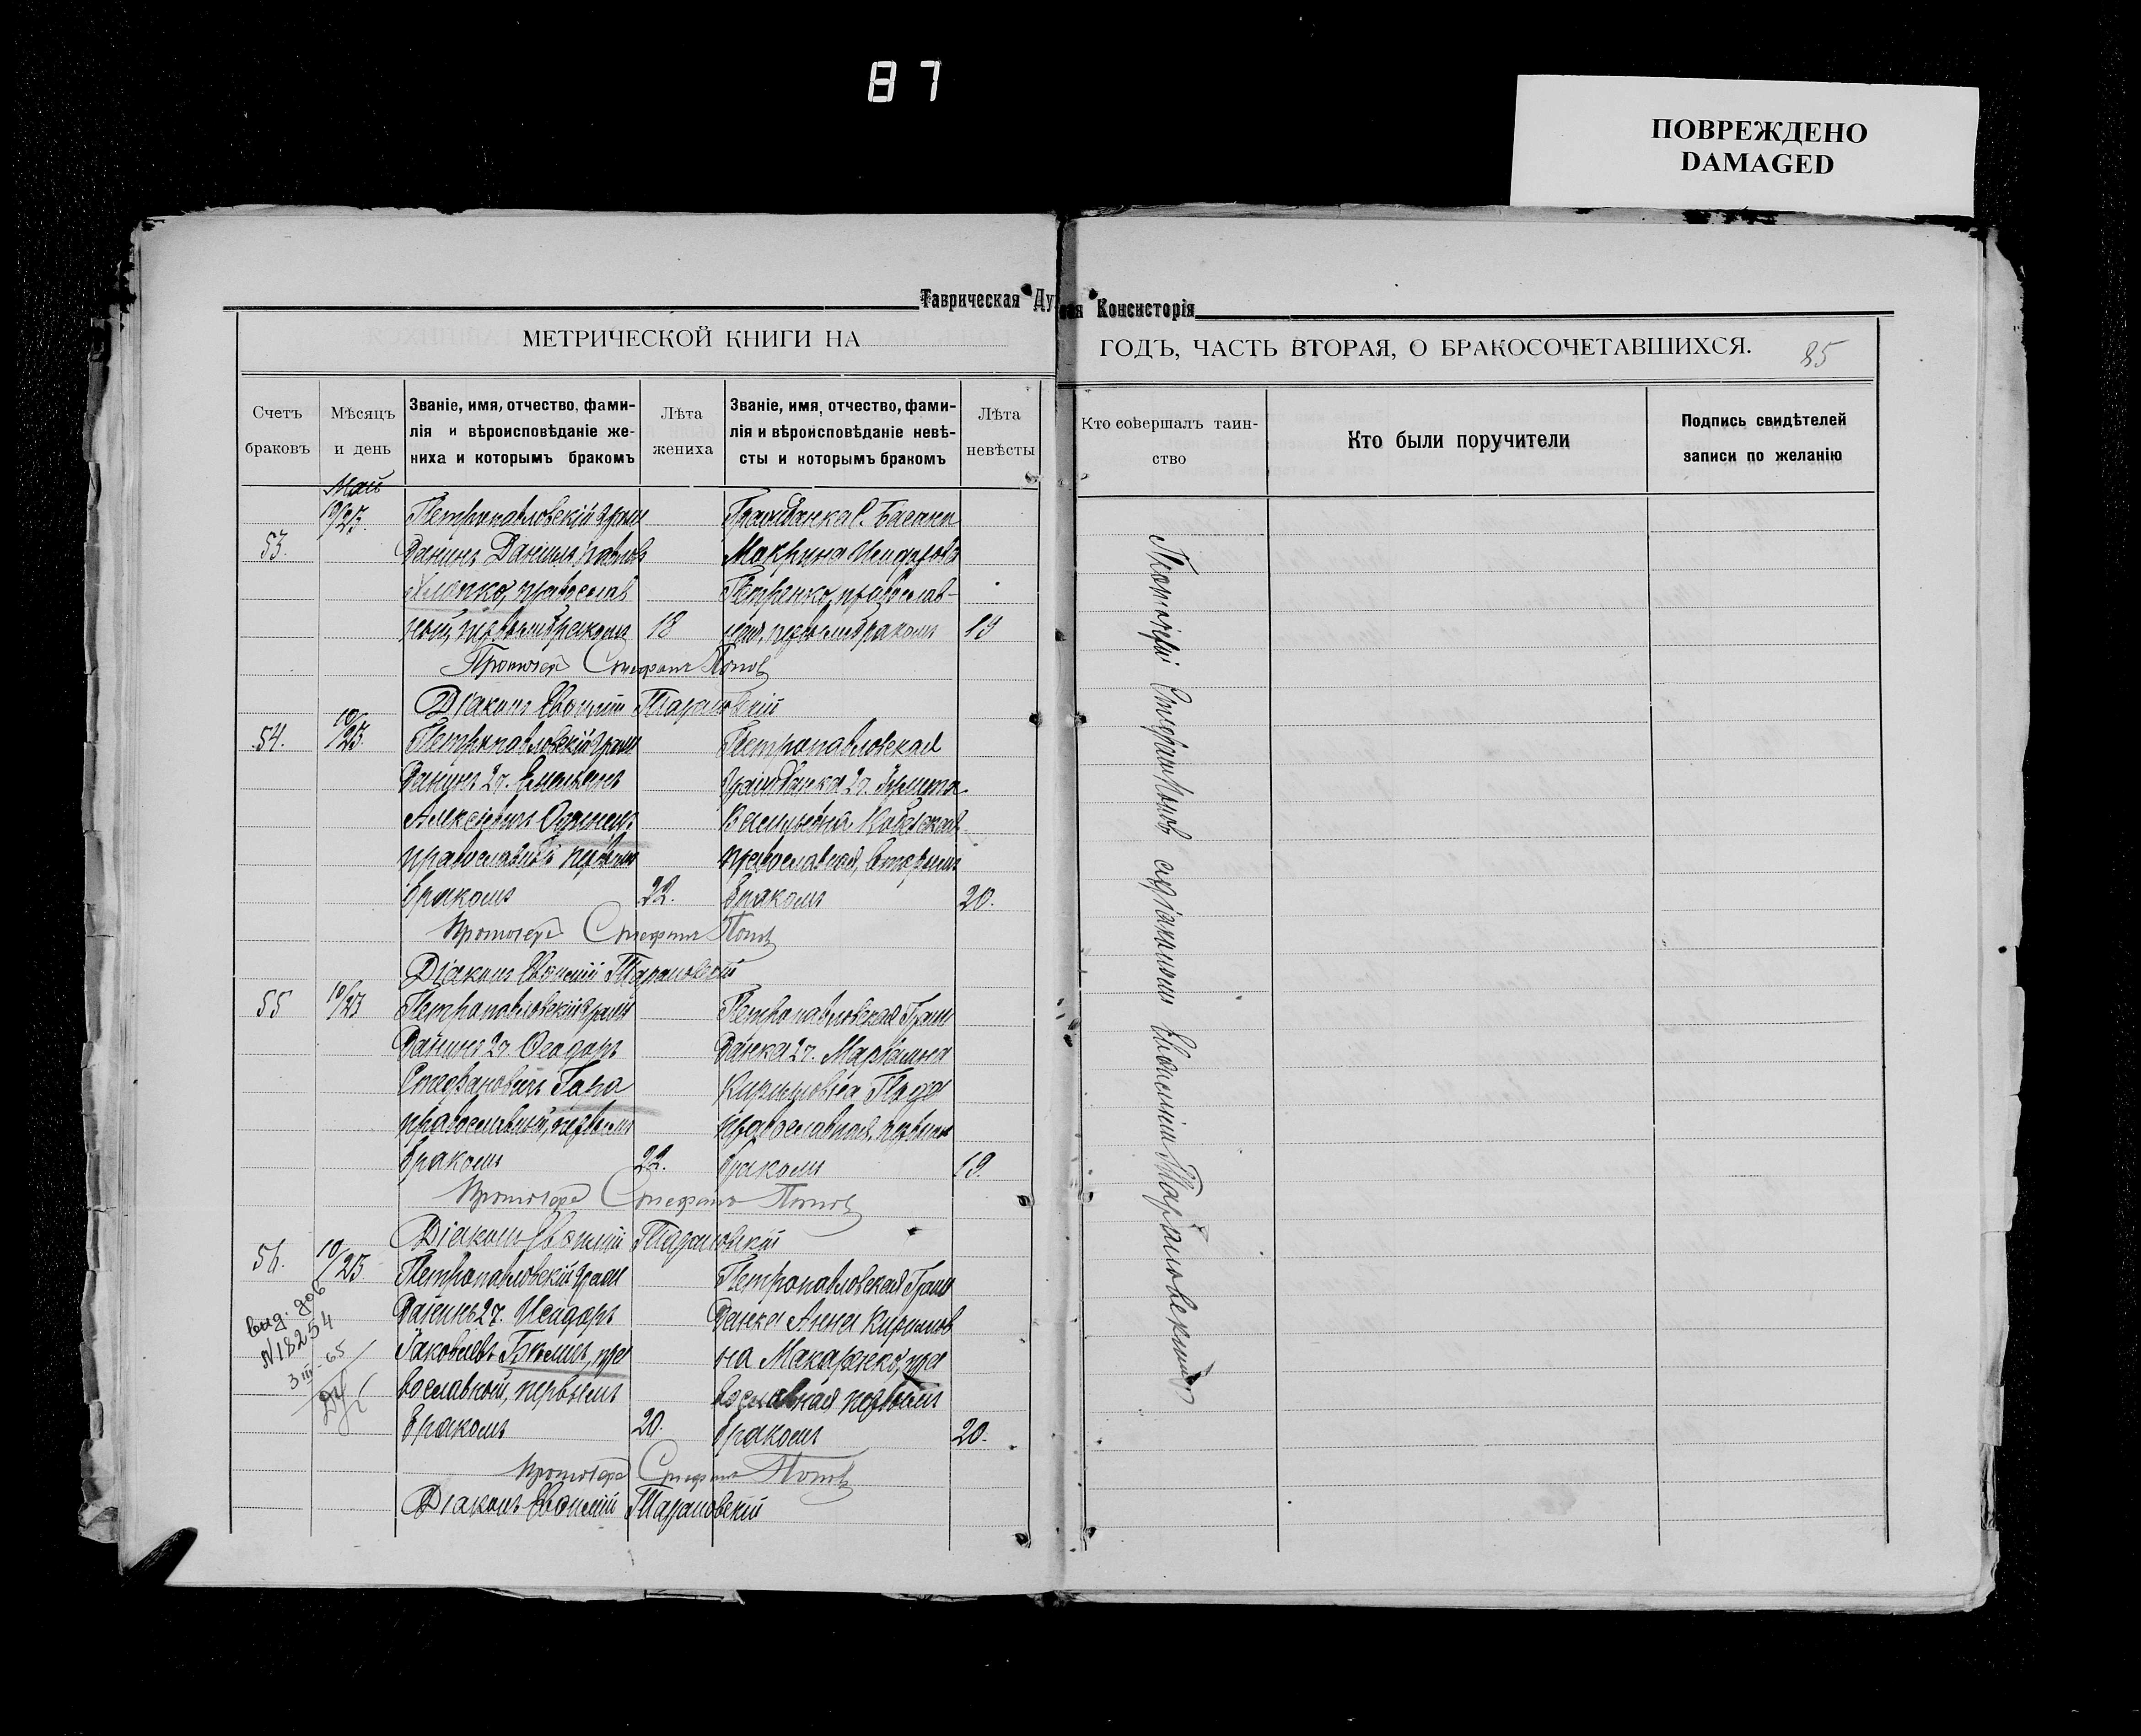 87
ПОВРЕЖДЕНО
DAMAGED
Таврическая Ду
вая Консисторія
МЕТРИЧЕСКОЙ КНИГИ НА
ГОДЪ, ЧАСТЬ ВТОРАЯ, О БРАКОСОЧЕТАВШИХСЯ.
85
Счетъ
браковъ
Мѣсяцъ
и день
Званіе, имя, отчество, фами-
лія и вѣроисповѣданіе же-
ниха и которымъ бракомъ
Лѣта
жениха
Званіе, имя, отчество, фами-
лія и вѣроисповѣданіе невѣ-
сты и которымъ бракомъ
Лѣта
невѣсты
Кто совершалъ таин-
ство
Кто были поручители
Подпись свидѣтелей
записи по желанію
Май
53.
10/23.
Петропавловскій граж
данинъ Даніилъ Павловъ
православ
ный, первымъ бракомъ
18
Гражданка С.
Макрина Исидорова
Петренко, православ-
ная, первымъ бракомъ
19
Протоіерей Стефанъ Попов
Діаконъ Евѳимій Тарановскій
54.
10/23.
Петропавловскій граж
данинъ 2 ч. Емельянъ
Алексѣевичъ
православный первымъ
бракомъ
22.
Петропавловская
гражданка 2 ч.
Васильевна
православная, вторымъ
бракомъ
20.
Протоіерей Стефанъ Попов
Діаконъ Евѳимій Тарановскій
55
10/23
Петропавловскій граж
данинъ 2 ч. Ѳеодоръ
Стефановичъ Гара
православный, первымъ
бракомъ
22.
Петропавловская Граж
данка 2 ч. Маріамна
Кириловна
православная, первым
бракомъ
19.
Протоіерей Стефанъ Попов
Діаконъ Евѳимій Тарановскій
56.
10/23.
Петропавловскій граж
данинъ 2 ч. Исидоръ
Іаковлевъ пра
вославной, первымъ
бракомъ
20.
Петропавловская Граж
данка Анна Кирилов
на Макаренко, пра
вославная первымъ
бракомъ
20.
выд. дов
N18254
3 III-65
Протоіерей Стефанъ Попов
Діаконъ Евѳимій Тарановскій
Протоіерей Стефанъ Попов съ діакономъ Евѳиміемъ Тарановскимъ